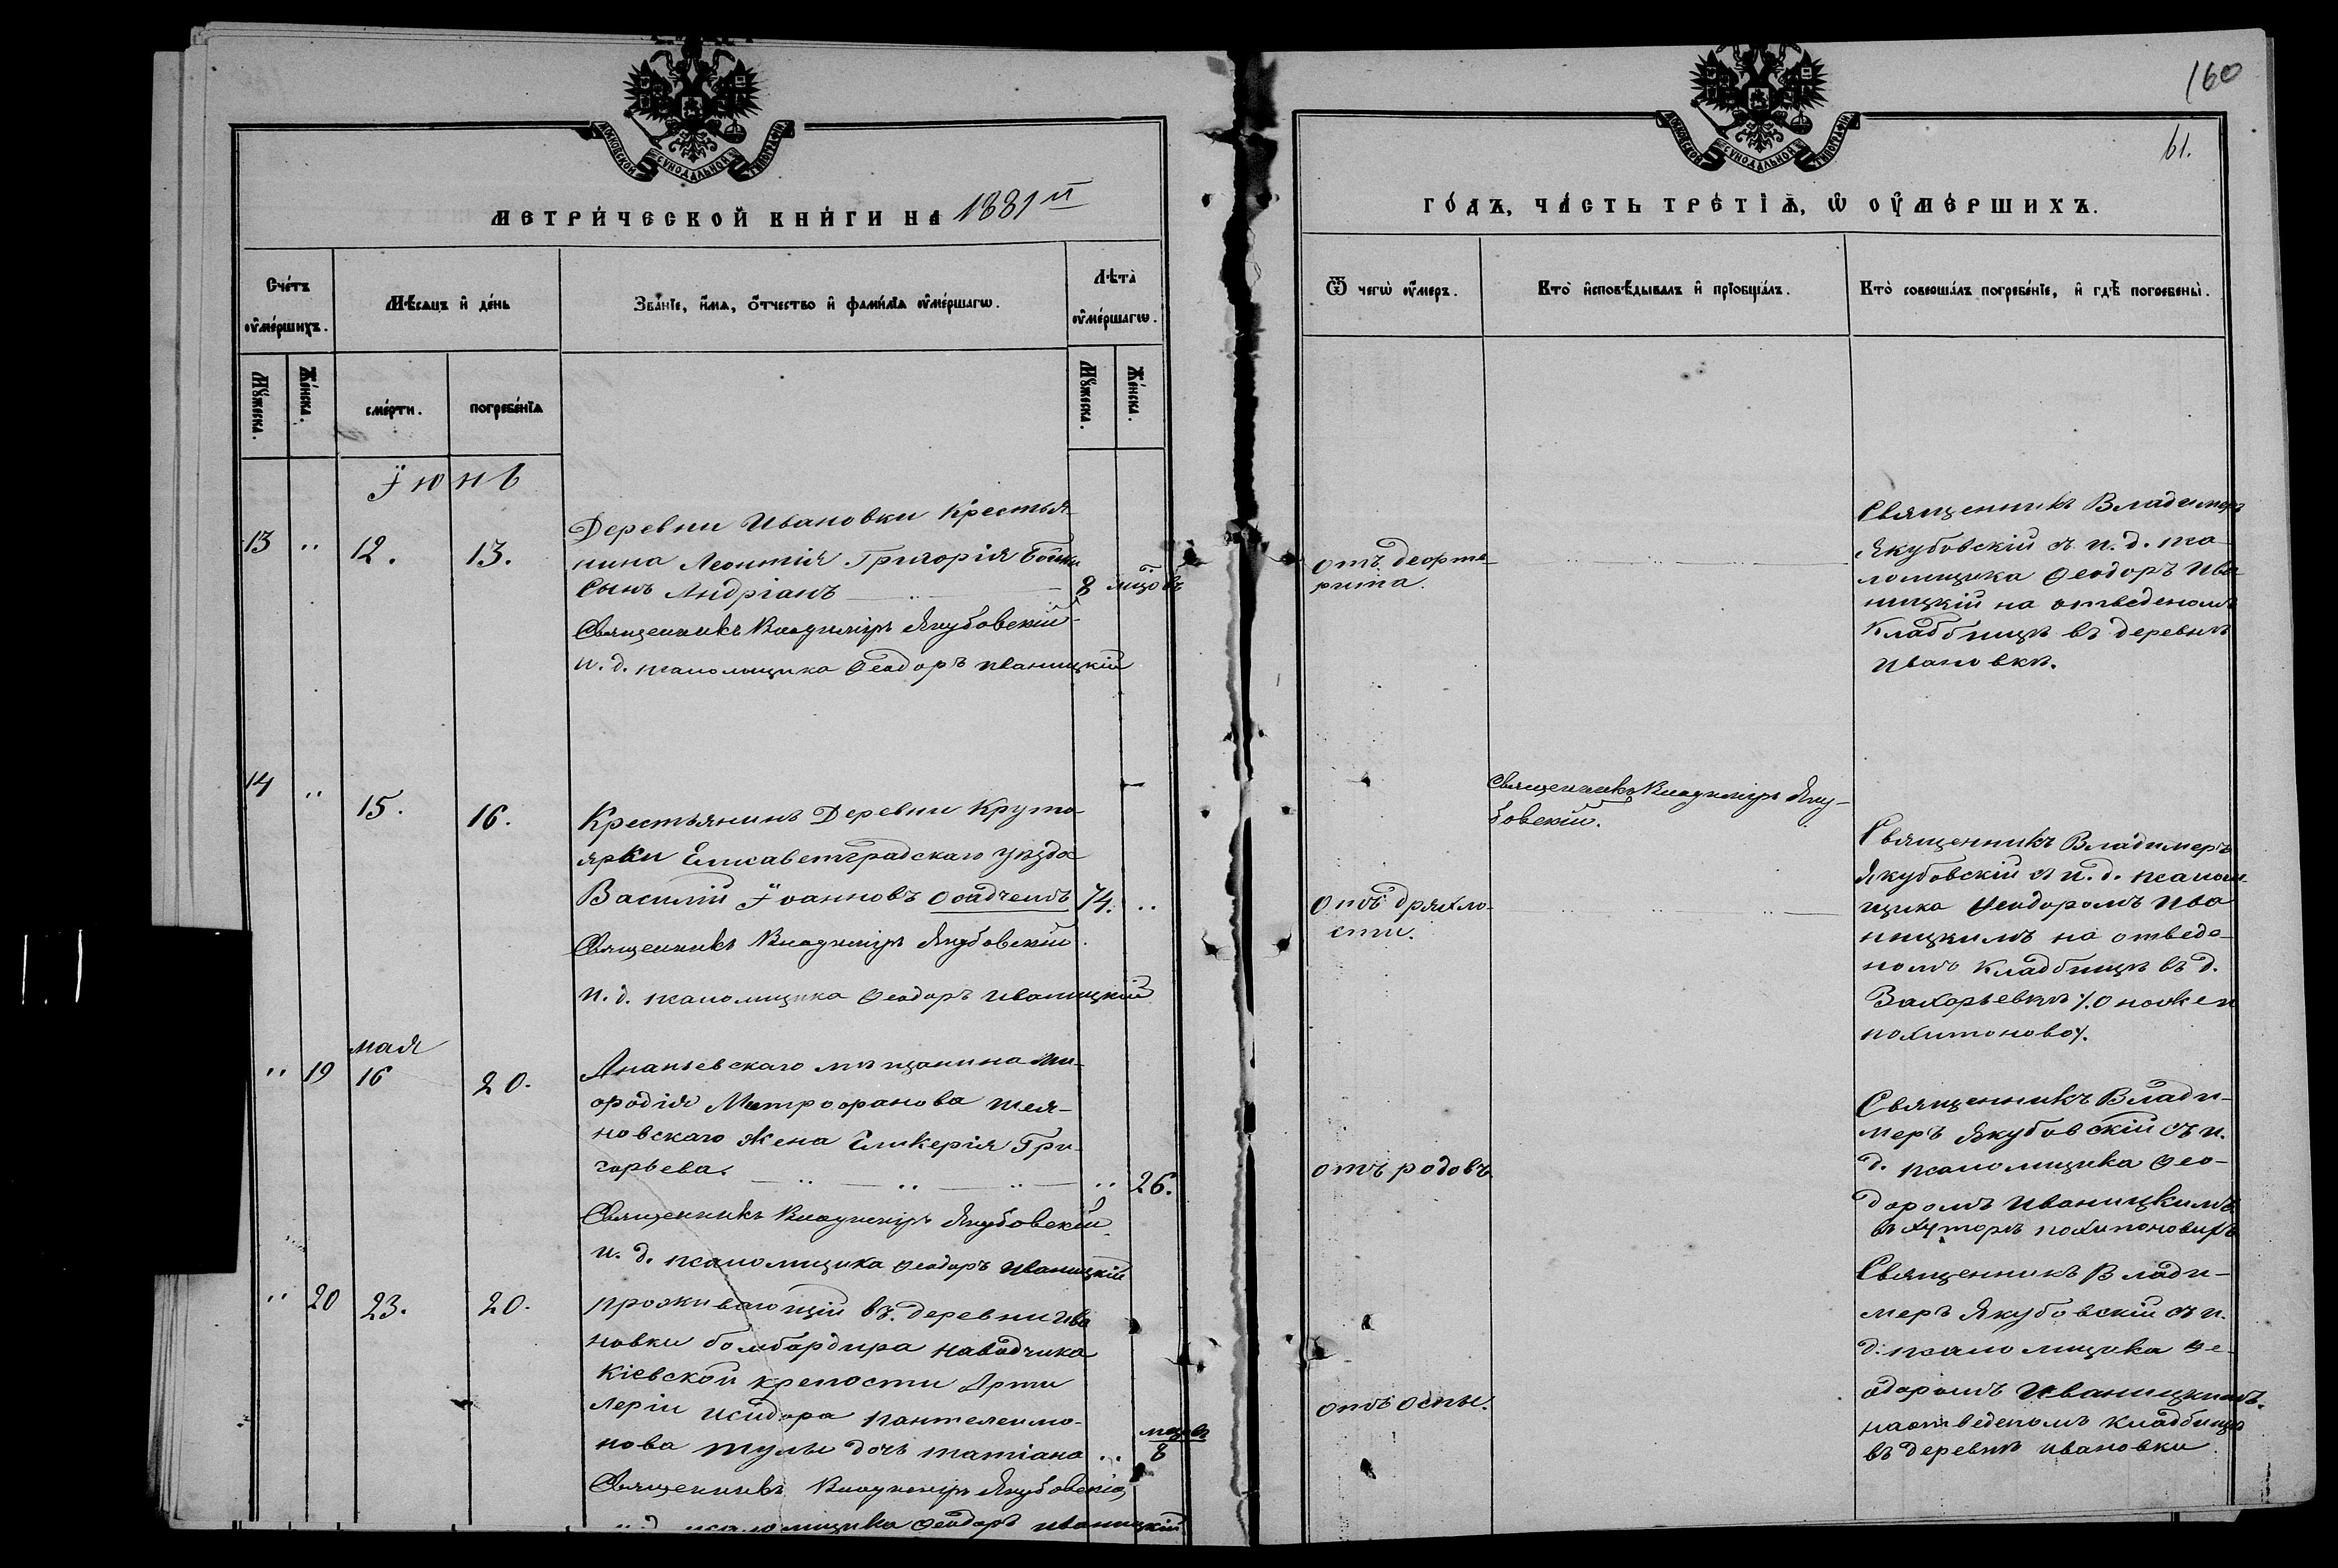 160
61.
МОСКОВСКОЙ СѴНОДАЛЬНОЙ ТИПОГРАФІИ
МОСКОВСКОЙ СѴНОДАЛЬНОЙ ТИПОГРАФІИ
МЕТРИ́ЧЕСКОЙ КНИ́ГИ НА 1881й
ГО́ДЪ, ЧА́СТЬ ТРЕ́ТІѦ, Ѡ ОУМЕ́РШИХЪ.
Сче́тъ оуме́ршихъ.
Мѣ́сѧцъ и де́нь
Зва́нїе, и́мѧ, о́тчество и фами́лїѧ оуме́ршагѡ.
Лѣ́та оуме́ршагѡ.
Ѿ чегѡ̀ оу́меръ.
Кто̀ и҆сповѣ́дывалъ и҆ прїобща́лъ.
Кто̀ соверша́лъ погребе́нїе, и҆ гдѣ̀ погребены̀.
Мꙋ́жеска.
Же́нска.
сме́рти.
погребе́нїѧ
Мꙋ́жеска.
Же́нска.
Іюнь
13 " 12. 13.
Деревни Ивановки крестья-
нина Леонтія Григорія
Сынъ Андріанъ 8 мцовъ
Священникъ Владиміръ Якубовскій
и. д. псаломщика Ѳеодоръ Иваницкій
отъ
Священникъ Владимеръ
Якубовскій съ и. д. пса-
ломщика Ѳеодоръ Ива-
ницкій на отведеномъ
Кладбищѣ въ деревнѣ
Ивановкѣ.
14 " 15. 16.
Крестьянинъ Деревни Круто-
ярки Елисаветградскаго уѣзда
Василій Іоанновъ 74. "
Священникъ Владиміръ Якубовскій
и. д. псаломщика Ѳеодоръ Иваницкій
отъ дряхло-
сти.
Священникъ Владиміръ Яку-
бовскій.
Священникъ Владимеръ
Якубовскій съ и. д. псалом-
щика Ѳеодоромъ Ива-
ницкимъ на отведе-
номъ Кладбищѣ въ д.
Захарьевкѣ
похитоново/.
" 19 мая 16 20.
Ананьевскаго мѣщанина
Митрофанова
новскаго жена Гликерія Гри-
горьева. " 26.
Священникъ Владиміръ Якубовскій
и. д. псаломщика Ѳеодоръ Иваницкій
отъ родовъ.
Священникъ Влади-
меръ Якубовскій съ и.
д. псаломщика Ѳео-
доромъ Иваницкимъ
въ хуторѣ похитоновыхъ
" 20 23. 20.
проживающій въ деревни Ива
новки бомбардира наводчика
Кіевской крепости Арти
леріи исидора пантелеимо-
нова дочь татіана " мцовъ 8
Священникъ Владиміръ Якубовскій
и. д. псаломщика Ѳеодоръ Иваницкій
отъ оспы.
Священникъ Влади-
меръ Якубовскій съ и.
д. псаломщика Ѳе-
одоромъ Иваницкимъ.
на отведеномъ кладбище
въ деревнѣ ивановки